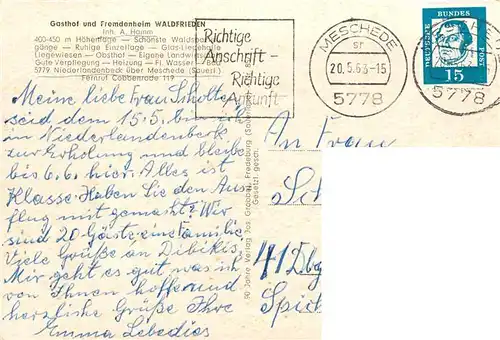 Gasthof und Fremdenheim WALDFRIEDEN
Inh. A. Hamm
400-450 m Höhenlage - Schönste Waldspa
gänge - Ruhige Einzellage - Glas-Liegehalle
Liegewiesen - Obsthof - Eigene Landwi
Gute Verpflegung - Heizung - Fl. Wasser - Bä
5779 Niederlandenbeck über Meschede (Sauerl.)
Fernruf Cobbenrode 119
Richtige
Anschrift -
Richtige
Ankunft
MESCHEDE
sr
20.5.63-15
5778
DEUTSCHE BUNDES POST
15
5778
Meine liebe Frau Scholte
seid dem 15.5. bin ich
in Niederlandenbeck
zur Erholung und bleibe
bis 6.6. hier. Alles ist
Klasse. Haben Sie den Aus
flug mit gemacht? Wir
sind 20 Gäste, eine Familie
Viele Grüße an Dibikis
Mir geht es gut, was ich
von Ihnen hoffe und
herzliche Grüße Ihre
Emma Lebedies
90 Jahre Verlag Jos. Grobbel, Fredeburg (Sauerland)
Gesetzl. gesch.
An Frau
Sch
41 Dbg
Spich